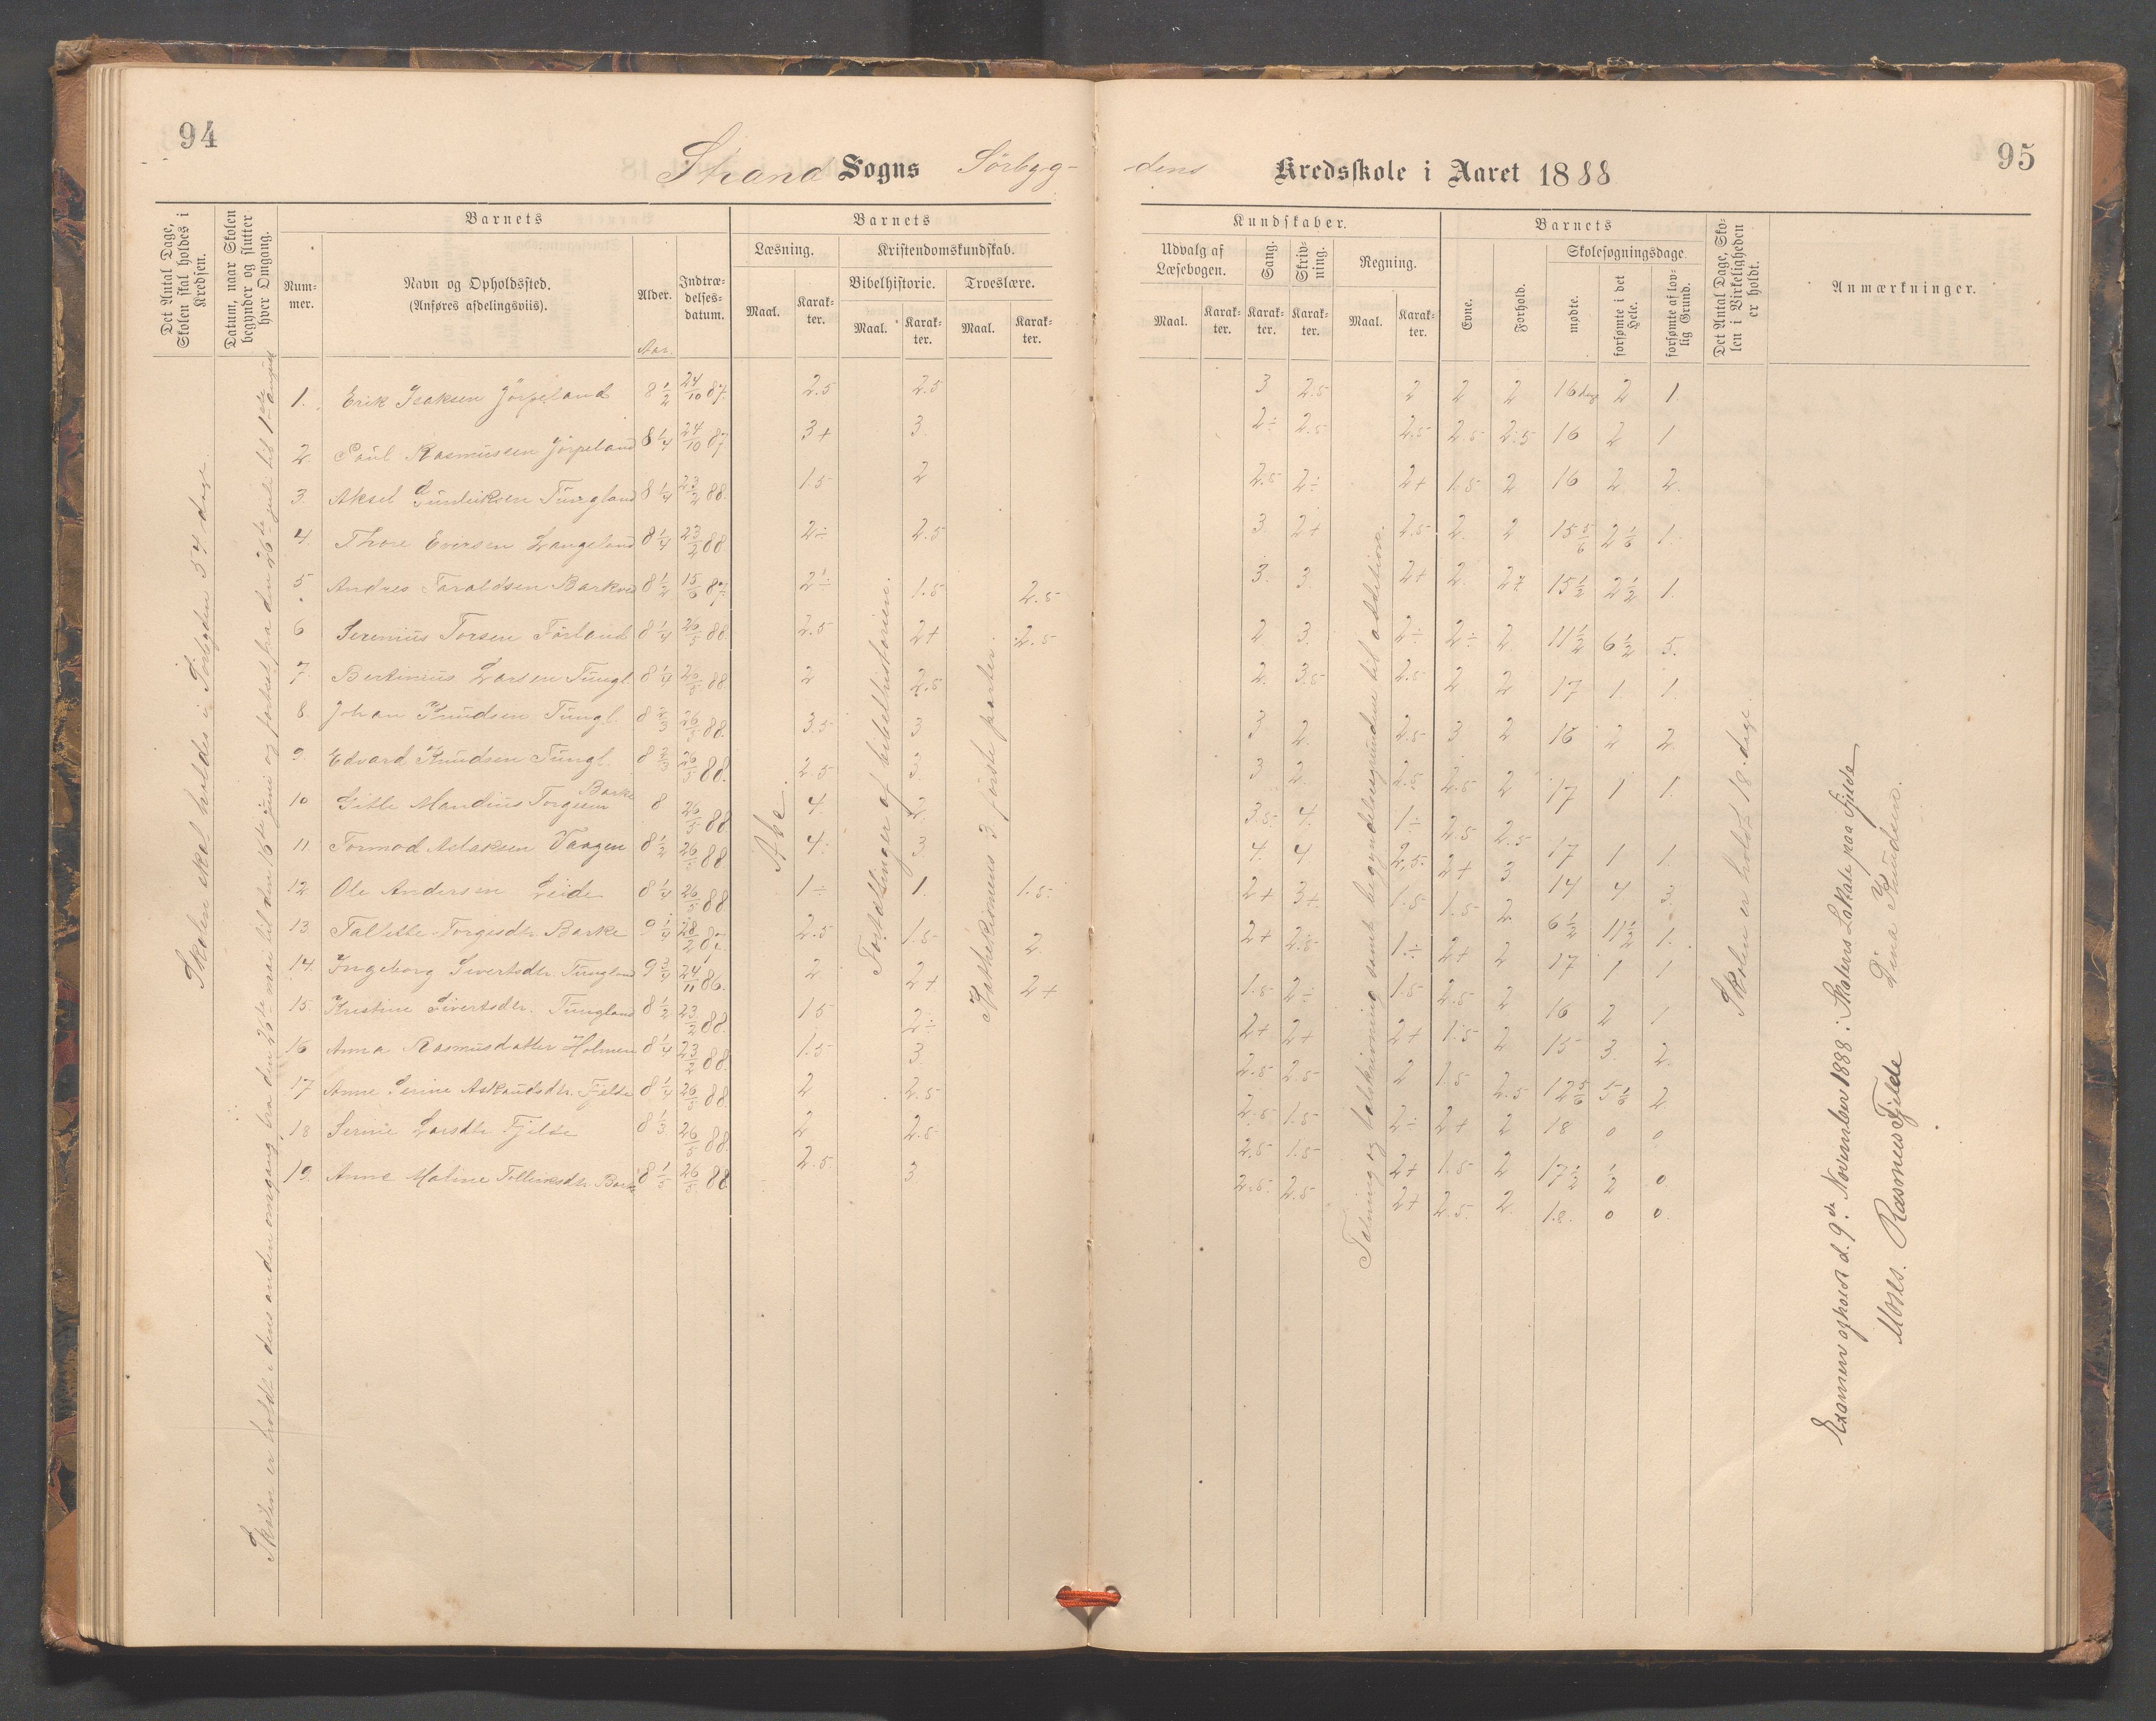 94
Strand Sogns Sörbyg-
Det Antal Dage, Skolen skal holdes i Kredsen.
Datum, naar Skolen begynder og slutter hver Omgang.
Barnets
Num-
mer.
Navn og Opholdssted.
(Anføres afdelingsviis).
Alder.
Aar.
Indtræ-
delses-
datum.
Barnets
Læsning.
Kristendomskundskab.
Maal.
Karak-
ter.
Bibelhistorie.
Troeslære.
Maal.
Karak-
ter.
Maal.
Karak-
ter.
Skolen skal holdes i Sörbygden 54 dage.
Skolen er holdt i dens anden omgang fra den 26de mai til den 16de juni og fortsat fra den 26de juli til 1ste august
1. Erik Isaksen Jörpeland 8 1/2 24/10 87. 2.5 2.5
2. Paul Rasmussen Jörpeland 8 1/4 24/10 87 3+ 3
3. Aksel Gunleiksen Tungland 8 1/4 23/2 88. 1.5 2
4. Thore Eversen Langeland 8 1/4 23/2 88 2÷ 2.5
5. Andres Taraldsen Barkved 8 1/2 15/6 87. 2÷ 1.5 2.5
6 Serenius Torsen Förland 8 1/4 26/5 88. 2.5 2+ 2.5
7. Bertinius Larsen Tungl. 8 1/4 26/5 88. 2 2.5
8. Johan Knudsen Tungl. 8 2/3 26/5 88. 3.5 3
9. Edvard Knudsen Tungl. 8 2/3 26/5 88. 2.5 3
10 Gitle Mandius Torgersen Barke 8 26/5 88 4. 3.
11 Tormod Aslaksen Vaagen 8 1/2 26/5 88 4. 3
12. Ole Andersen Leide 8 1/4 26/5 88. 1÷ 1. 1.5
13. Tallette Torgesdtr. Barke 9 1/4 28/2 87. 2.5 1.5 2
14. Ingeborg Sivertsdtr. Tungland 9 3/4 24/11 86. 2 2+ 2+
15. Kristine Sivertsdtr. Tungland 8 1/2 23/2 88. 1.5 2÷
16 Anna Rasmusdatter Holmen 8 1/4 23/2 88. 1.5 3
17 Anne Serine Aslaudsdtr. Fjelde 8 1/4 26/5 88. 2 2.5
18 Serine Larsdtr Fjelde 8 1/3 26/5 88. 2 2.5
19. Anne Maline Tolleivsdtr. Barke 8 1/2 26/5 88 2.5 3
Abc.
Fortællinger af bibelhistorien.
Katekismens 3 förste parter.
95
dens Kredsskole i Aaret 1888
Kundskaber.
Udvalg af
Læsebogen.
Maal.
Karak-
ter.
Sang.
Karak-
ter.
Skriv-
ning.
Karak-
ter.
Regning.
Maal.
Karak-
ter.
Barnets
Evne.
Forhold.
Skolesøgningsdage.
mødte.
forsømte i det Hele.
forsømte af lov-
lig Grund.
Det Antal Dage, Sko-
len i Virkeligheden
er holdt.
Anmærkninger.
3 2.5 2 2 2 16 dag 2 1.
2÷ 2.5 2.5 2.5 2.5 16 2 1
2.5 2÷ 2+ 1.5 2 16 2 2.
3 2+ 2.5 2. 2 15 5/6 2 1/6 1.
3. 3. 2+ 2. 2+ 15 1/2 2 1/2 1.
2 3. 2÷ 2÷ 2 11 1/2 6 1/2 5.
2. 3.5 2.5 2 2 17 1. 1.
3 2. 2.5 3 2 16 2 2.
3 2. 2.5 2.5 2 17 1 1.
3.5 4. 1÷ 2.5 2.5 17 1 1.
4. 4 2.5. 2+ 3 14 4 3
2+ 3+ 1.5 1.5 2. 6 1/2 11 1/2 1.
2+ 2.5 1÷ 2+ 2 17 1 1
1.5 2÷ 1.5 2.5 2 16 2 1
2+ 2+ 2+ 1.5 2 15 3. 2.
2.5 2.5 2 1.5 2.5 12 5/6 5 1/6 2.
2.5 1.5 2÷ 2+ 2 18 0 0
2.5 1.5 2+ 1.5 2 17 1/2 1/2 0.
2.5. 2.5 2+ 2.5. 2. 18. 0 0.
Tælning og talskrivning samt begyndelsesgrundene til addition.
Skolen er holdt 18. dage.
Examen afholdt d. 9de November 1888 i Skolens Lokale paa Fjelde
Moses. Rasmus Fjelde Dina Knudsen.